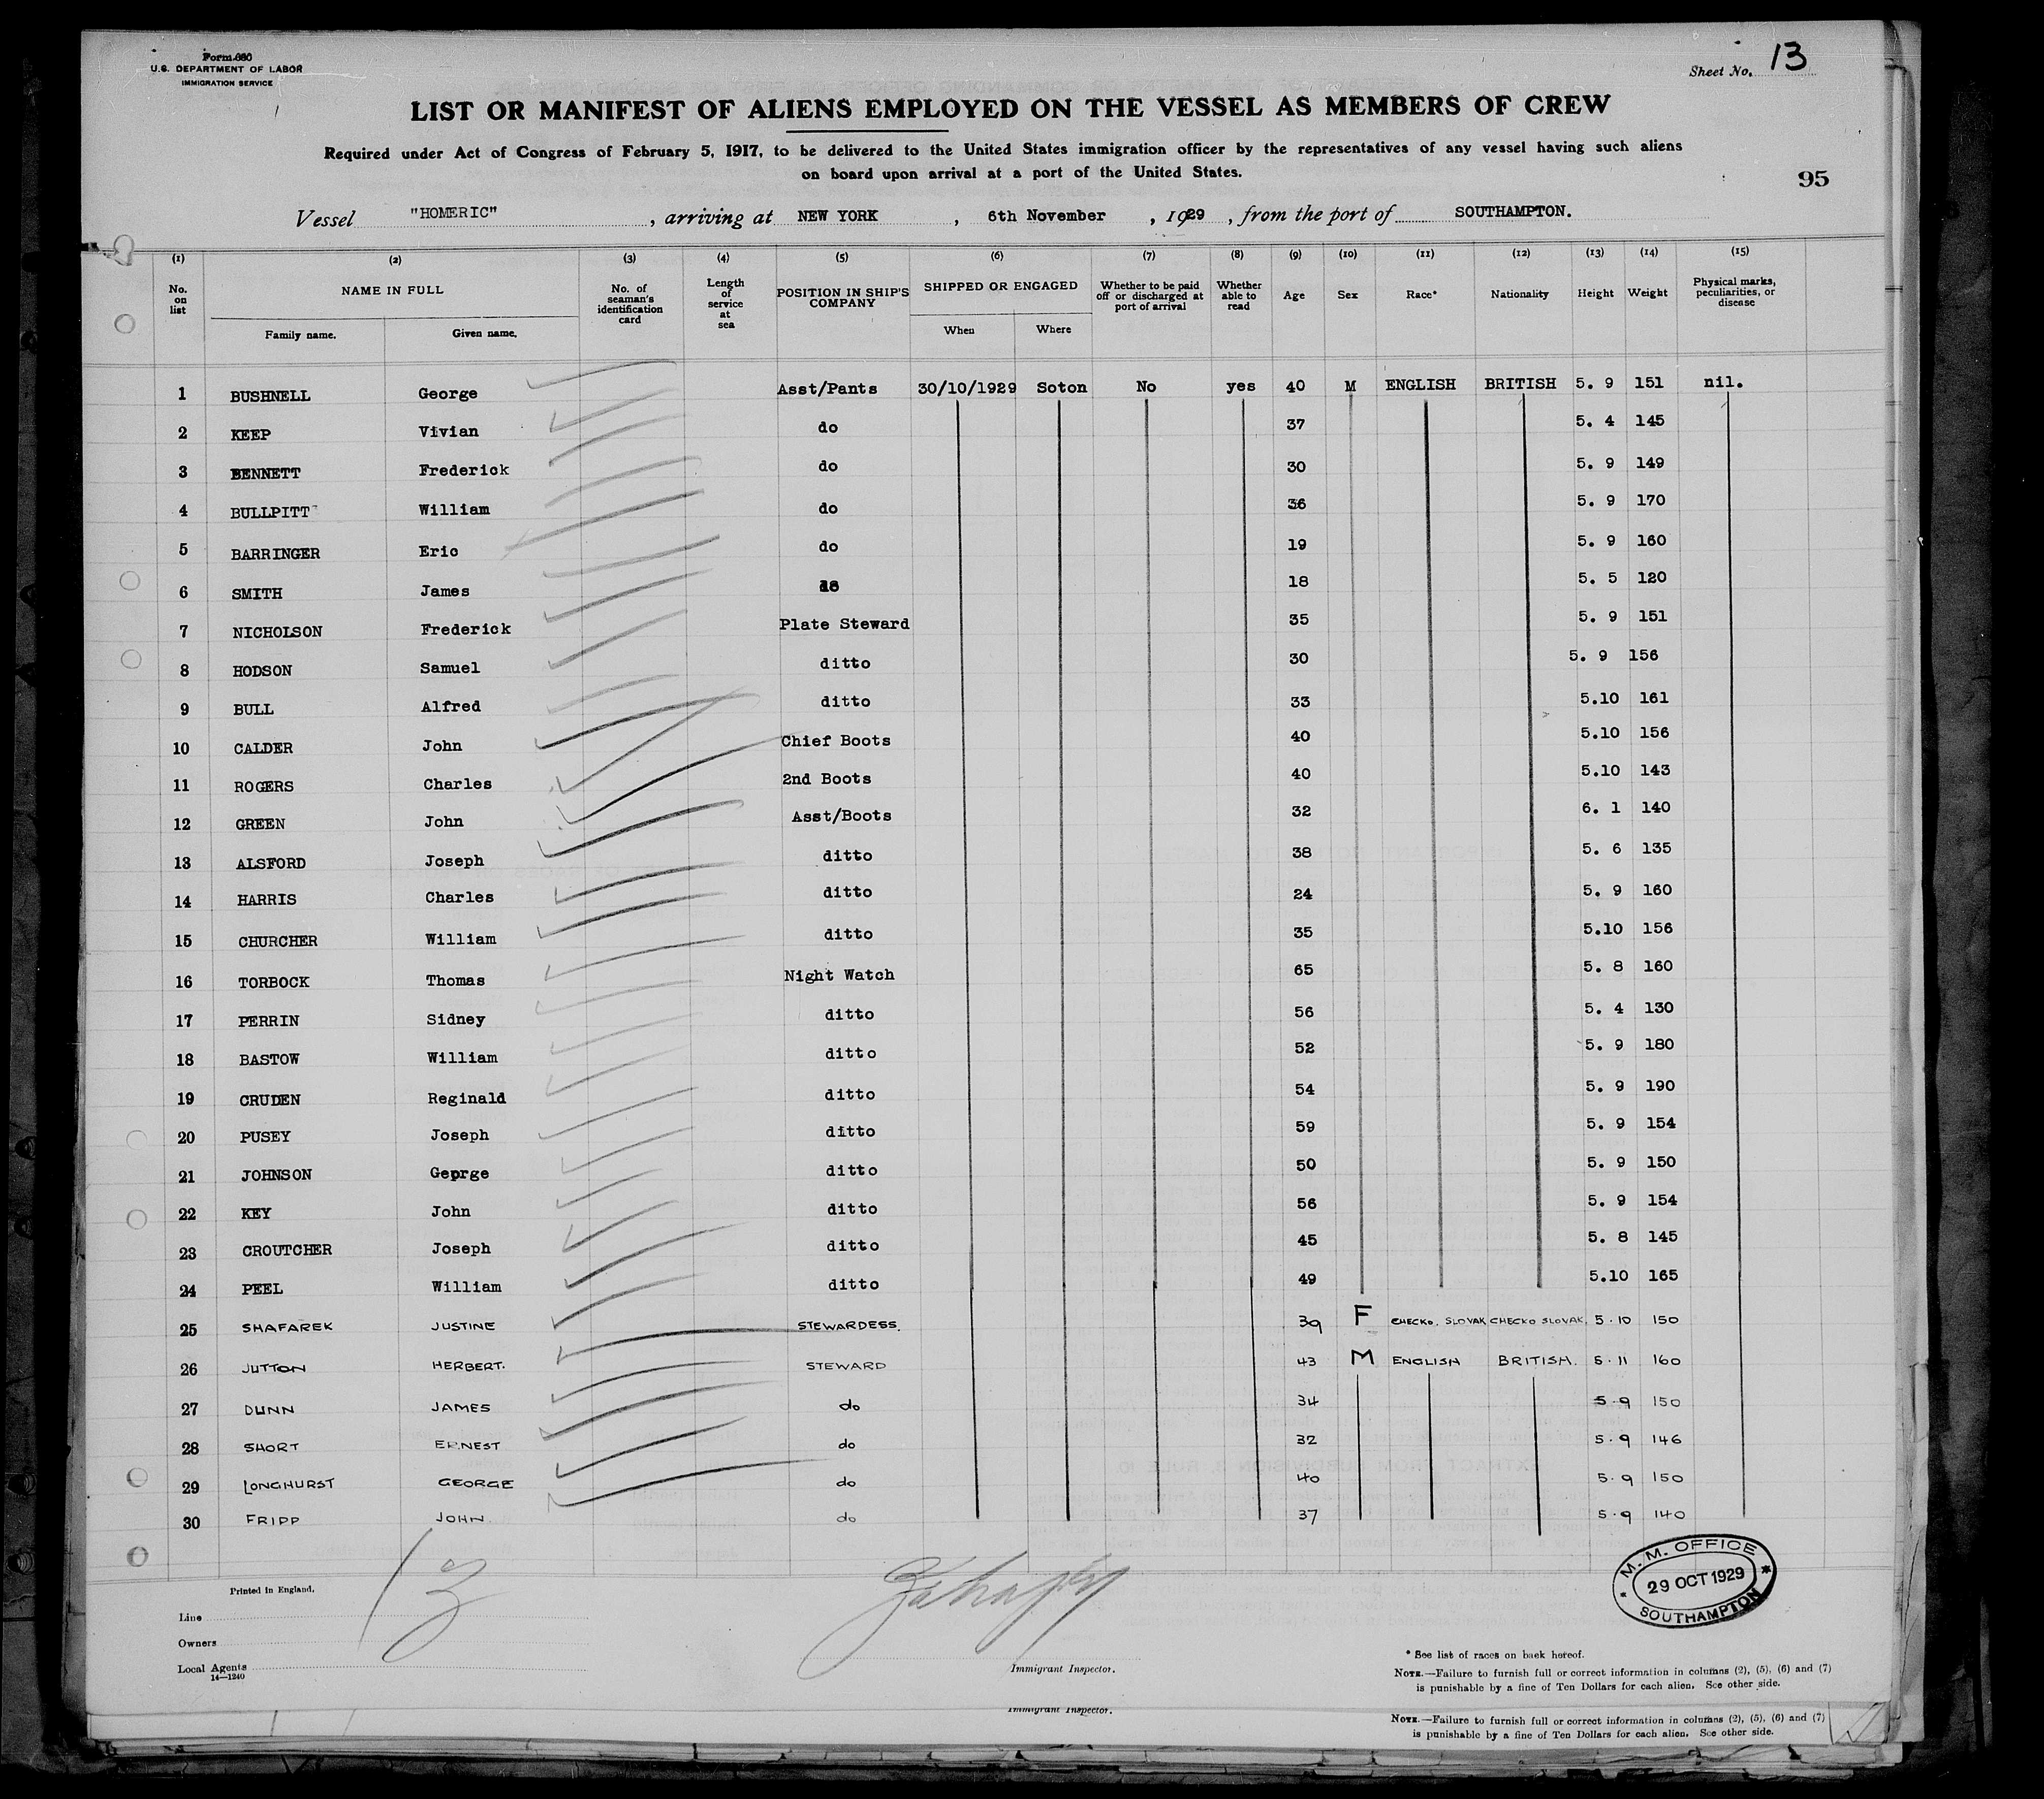 Form 680
U.S. DEPARTMENT OF LABOR
IMMIGRATION SERVICE
Sheet No. 13
LIST OR MANIFEST OF ALIENS EMPLOYED ON THE VESSEL AS MEMBERS OF CREW
Required under Act of Congress of February 5, 1917, to be delivered to the United States immigration officer by the representatives of any vessel having such aliens
on board upon arrival at a port of the United States.
95
Vessel "HOMERIC", arriving at NEW YORK, 6th November, 1929, from the port of SOUTHAMPTON.
(1) (2) (3) (4) (5) (6) (7) (8) (9) (10) (11) (12) (13) (14) (15)
No. on list NAME IN FULL No. of seaman's identification card Length of service at sea POSITION IN SHIP'S COMPANY SHIPPED OR ENGAGED Whether to be paid off or discharged at port of arrival Whether able to read Age Sex Race* Nationality Height Weight Physical marks, peculiarities, or disease
Family name. Given name. When Where
1 BUSHNELL George Asst/Pants 30/10/1929 Soton No yes 40 M ENGLISH BRITISH 5. 9 151 nil.
2 KEEP Vivian do 37 5. 4 145
3 BENNETT Frederick do 30 5. 9 149
4 BULLPITT William do 36 5. 9 170
5 BARRINGER Eric do 19 5. 9 160
6 SMITH James do 18 5. 5 120
7 NICHOLSON Frederick Plate Steward 35 5. 9 151
8 HODSON Samuel ditto 30 5. 9 156
9 BULL Alfred ditto 33 5.10 161
10 CALDER John Chief Boots 40 5.10 156
11 ROGERS Charles 2nd Boots 40 5.10 143
12 GREEN John Asst/Boots 32 6. 1 140
13 ALSFORD Joseph ditto 38 5. 6 135
14 HARRIS Charles ditto 24 5. 9 160
15 CHURCHER William ditto 35 5.10 156
16 TORBOCK Thomas Night Watch 65 5. 8 160
17 PERRIN Sidney ditto 56 5. 4 130
18 BASTOW William ditto 52 5. 9 180
19 CRUDEN Reginald ditto 54 5. 9 190
20 PUSEY Joseph ditto 59 5. 9 154
21 JOHNSON Geprge ditto 50 5. 9 150
22 KEY John ditto 56 5. 9 154
23 CROUTCHER Joseph ditto 45 5. 8 145
24 PEEL William ditto 49 5.10 165
25 SHAFAREK JUSTINE STEWARDESS. 39 F CHECKO. SLOVAK CHECKO SLOVAK. 5.10 150
26 JUTTON HERBERT. STEWARD 43 M ENGLISH BRITISH. 5.11 160
27 DUNN JAMES do 34 5.9 150
28 SHORT ERNEST do 32 5.9 146
29 LONGHURST GEORGE do 40 5.9 150
30 FRIPP JOHN. do 37 5.9 140
M. M. OFFICE
29 OCT 1929
SOUTHAMPTON
Printed in England.
Line
Owners
Local Agents
14—1240
Immigrant Inspector.
* See list of races on back hereof.
NOTE.—Failure to furnish full or correct information in columns (2), (5), (6) and (7)
is punishable by a fine of Ten Dollars for each alien. See other side.
Immigrant Inspector.
NOTE.—Failure to furnish full or correct information in columns (2), (5), (6) and (7)
is punishable by a fine of Ten Dollars for each alien. See other side.